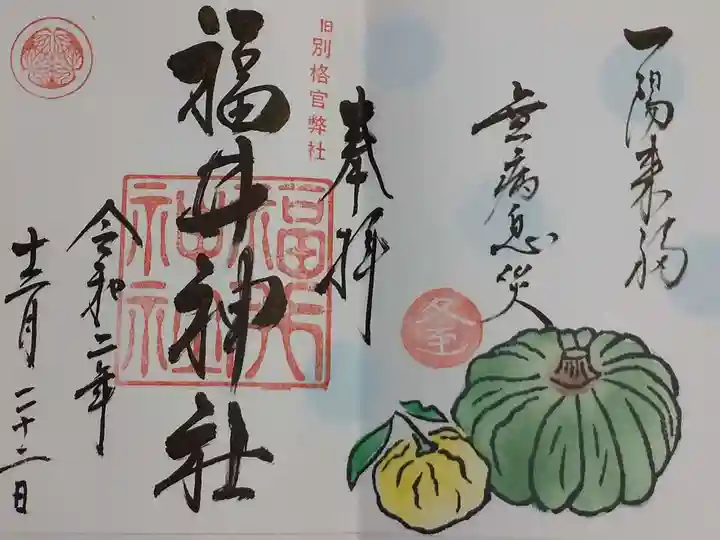 一陽来福
無病息災
冬至
奉拝
旧別格官幣社
福井神社
福井神社
令和二年
十二月二十二日